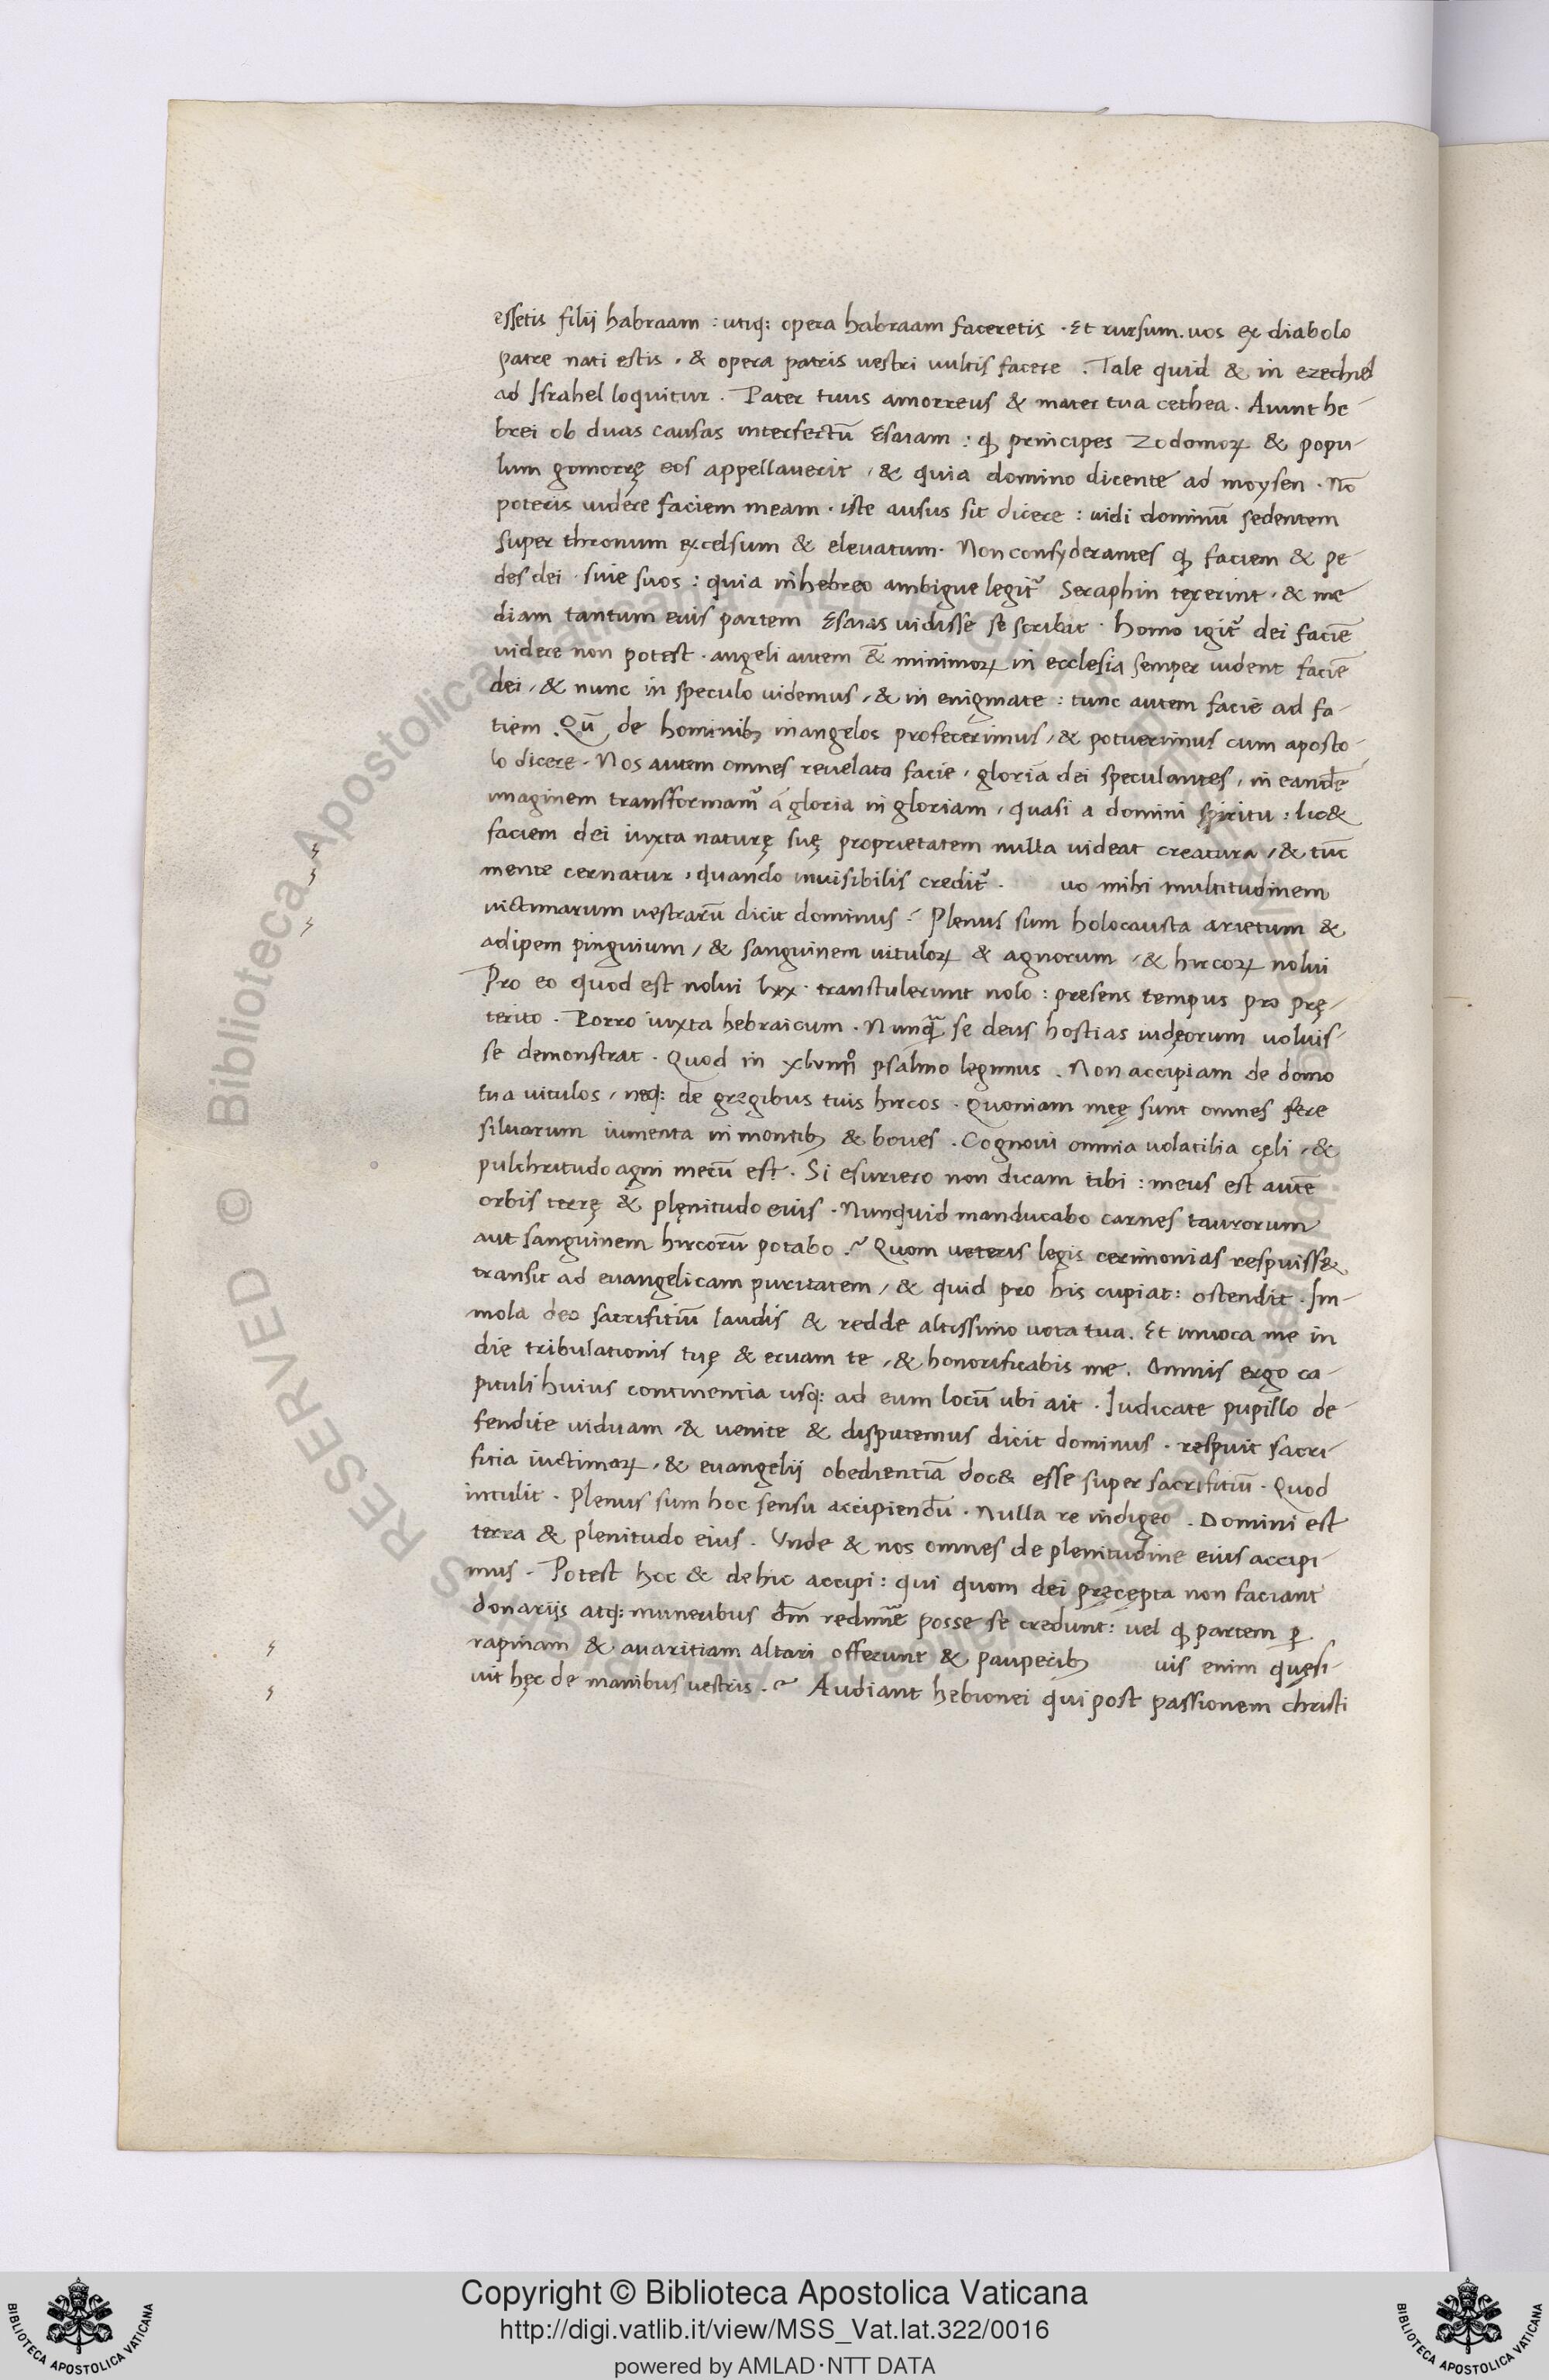 essetis filij habraam : utiq: opera habraam faceretis . Et rursum . uos ex diabolo
patre nati estis , & opera patris uestri uultis facere . Tale quid & in ezechiel
ad Israhel loquitur . Pater tuus amorreus & mater tua cethea . Aiunt he-
brei ob duas causas interfectū Esaiam : ꝙ principes Zodomoꝝ & popu-
lum gomorrę eos appellauerit , & quia domino dicente ad moysen . Nō
poteris uidere faciem meam . iste ausus sit dicere : uidi dominū sedentem
super thronum excelsum & eleuatum . Non consyderantes ꝙ faciem & pe-
des dei . siue suos : quia in hebreo ambigue legit᷑ Seraphin texerint , & me
diam tantum eius partem Esaias uidisse se scribit . homo igit᷑ dei faciē
uidere non potest . angeli autem & minimoꝝ in ecclesia semper uident faciē
dei , & nunc in speculo uidemus , & in enigmate : tunc autem facie ad fa-
tiem . Qū de hominibꝫ in angelos profecerimus , & potuerimus cum aposto-
lo dicere . Nos autem omnes reuelata facie , gloriā dei speculantes , in eandē
imaginem transformam᷑ a gloria in gloriam , quasi a domini spiritu : lic&
faciem dei iuxta naturę suę proprietatem nulla uideat creatura , & tūc
mente cernatur , quando inuisibilis credit᷑ . uo mihi multitudinem
uictimarum uestrarū dicit dominus ? Plenus sum holocausta arietum &
adipem pinguium , & sanguinem uituloꝝ & agnorum , & hircoꝝ nolui
Pro eo quod est nolui lxx . transtulerunt nolo : presens tempus pro prę-
terito . Porro iuxta hebraicum . Nunꝗ̄ se deus hostias iudęorum uoluis-
se demonstrat . Quod in psalmo legimus . Non accipiam de domo
tua uitulos , neq: de gregibus tuis hircos . Quoniam meę sunt omnes fere
siluarum iumenta in montibꝫ & boues . Cognoui omnia uolatilia cęli , &
pulchritudo agri mecū est . Si esuriero non dicam tibi : meus est autē
orbis terrę & plęnitudo eius . Nunquid manducabo carnes taurorum
aut sanguinem hircorū potabo ? Quom ueteris legis cerimonias respuiss&
transit ad euangelicam puritatem , & quid pro his cupiat : ostendit . Im-
mola deo sacrifitiū laudis & redde altissimo uota tua . Et inuoca me in
die tribulationis tuę & eruam te , & honorificabis me . Omnis ergo ca-
pituli huius continentia usq: ad eum locū ubi ait . Iudicate pupillo de-
fendite uiduam , & uenite & disputemus dicit dominus . respuit sacri-
fitia uictimaꝝ , & euangelij obedientiā doc& esse super sacrifitiū . Quod
intulit . Plenus sum hoc sensu accipiendū . Nulla re indigeo . Domini est
terra & plenitudo eius . Vnde & nos omnes de plenitudine eius accipi-
mus . Potest hoc & de hic accipi : qui quom dei pręcepta non faciant
donarijs atq: muneribus dm̄ redimē posse se credunt : uel ꝙ partem ꝑ
rapinam & auaritiam altari offerunt & pauperibꝫ uis enim quęsi-
uit hęc de manibus uestris ? Audiant hebionei qui post passionem christi
RESERVED © Biblioteca Apostolica Vaticana
Copyright © Biblioteca Apostolica Vaticana
http://digi.vatlib.it/view/MSS_Vat.lat.322/0016
powered by AMLAD·NTT DATA
BIBLIOTECA APOSTOLICA VATICANA
BIBLIOTECA APOSTOLICA VATICANA